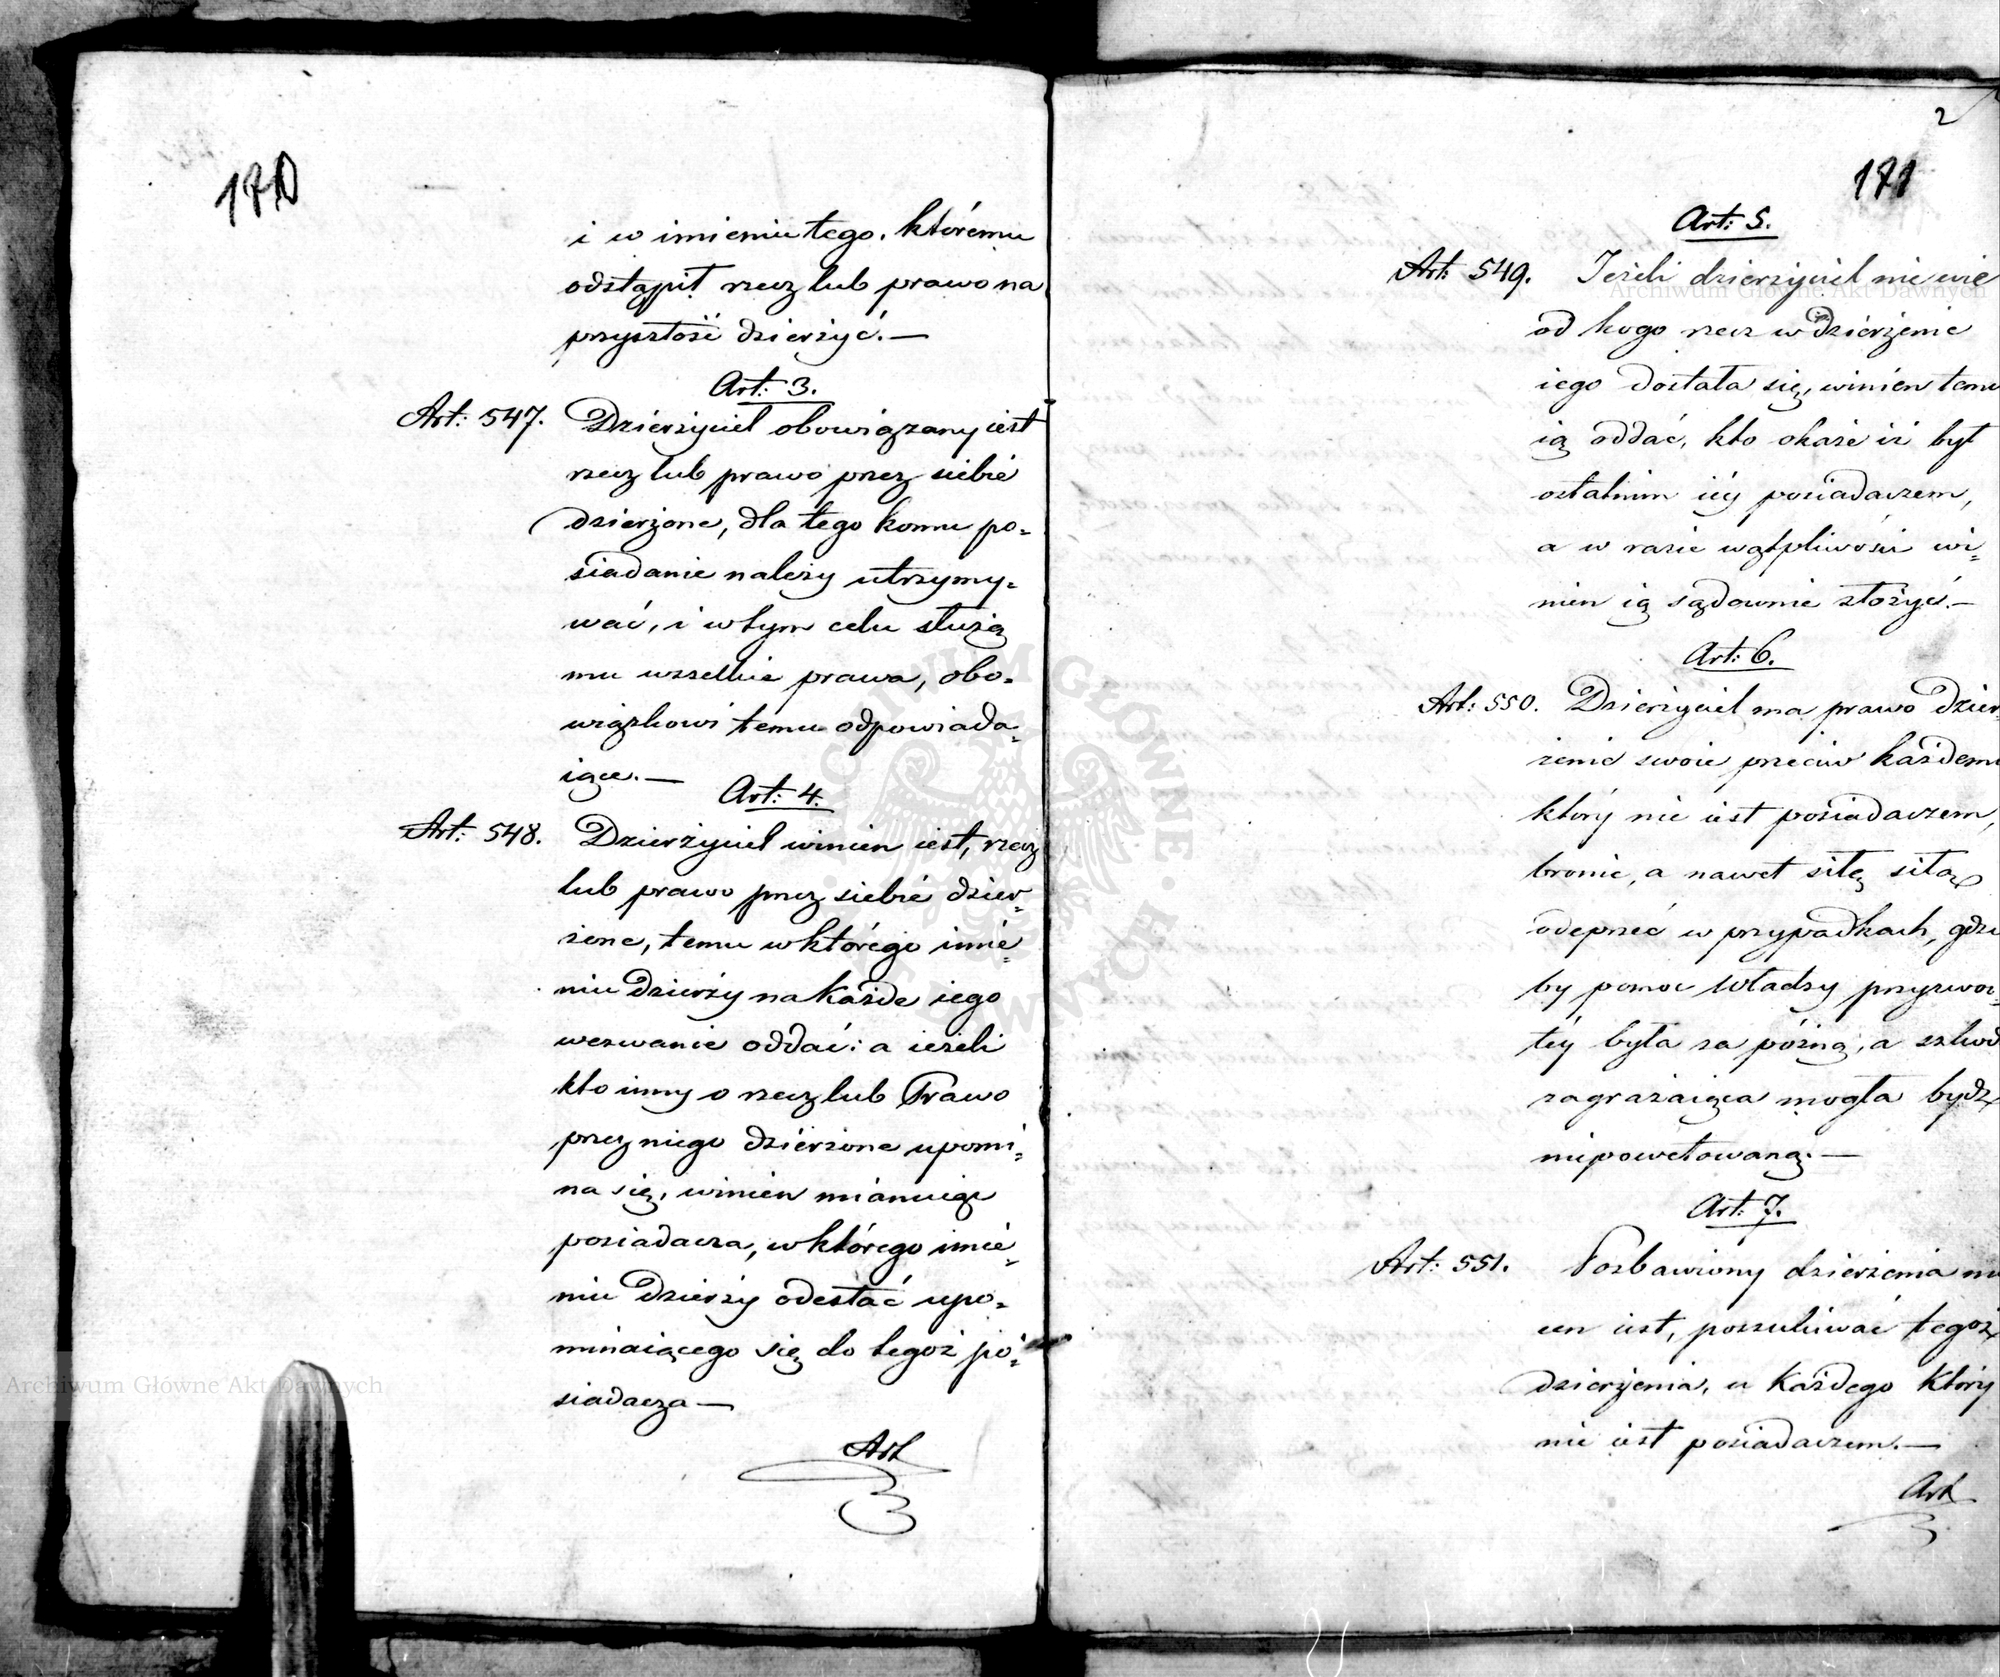 170
i w imieniu tego, któremu
odstąpił rzecz lub prawo na
przyszłość dzierżyć.—
Art: 3.
Art: 547. Dzierżyciel obowiązany iest
rzecz lub prawo przez siebie
dzierżone, dla tego komu po=
siadanie należy utrzymy=
wać, i w tym celu służą
mu wszelkie prawa, obo=
wiązkowi temu odpowiada=
iące.—
Art: 4.
Art: 548. Dzierżyciel winien iest, rzecz
lub prawo przez siebie dzier=
żone, temu w którego imie=
niu dzierży na każde iego
wezwanie oddać: a ieżeli
kto inny o rzecz lub Prawo
przez niego dzierżone upomi=
na się, winien mianuiąc
posiadacza, w którego imie=
niu dzierży odesłać upo=
minaiącego się do tegoż po=
siadacza—
Art
2
171
Art: 5.
Art: 549. Jeżeli dzierżyciel nie wie
od kogo rzecz w dzierżenie
iego dostała się, winien temu
ią oddać, kto okaże iż był
ostatnim iéy posiadaczem,
a w razie wątpliwości wi=
nien ią sądownie złożyć.—
Art: 6.
Art: 550. Dzierżyciel ma prawo dzier
żenie swoie przeciw każdemu
który nie iest posiadaczem,
bronić, a nawet siłę siłą
odeprzeć w przypadkach, gdzie
by pomoc Władzy przyzwoi=
téy była za późną, a szkod
zagrażaiąca mogła bydź
niepowetowaną.—
Art: 7.
Art: 551. Pozbawiony dzierżenia mo
cen iest, poszukiwać tegoż
dzierżenia, u każdego który
nie iest posiadaczem.—
Art
Archiwum Główne Akt Dawnych
Archiwum Główne Akt Dawnych
ARCHIWUM GŁÓWNE AKT DAWNYCH